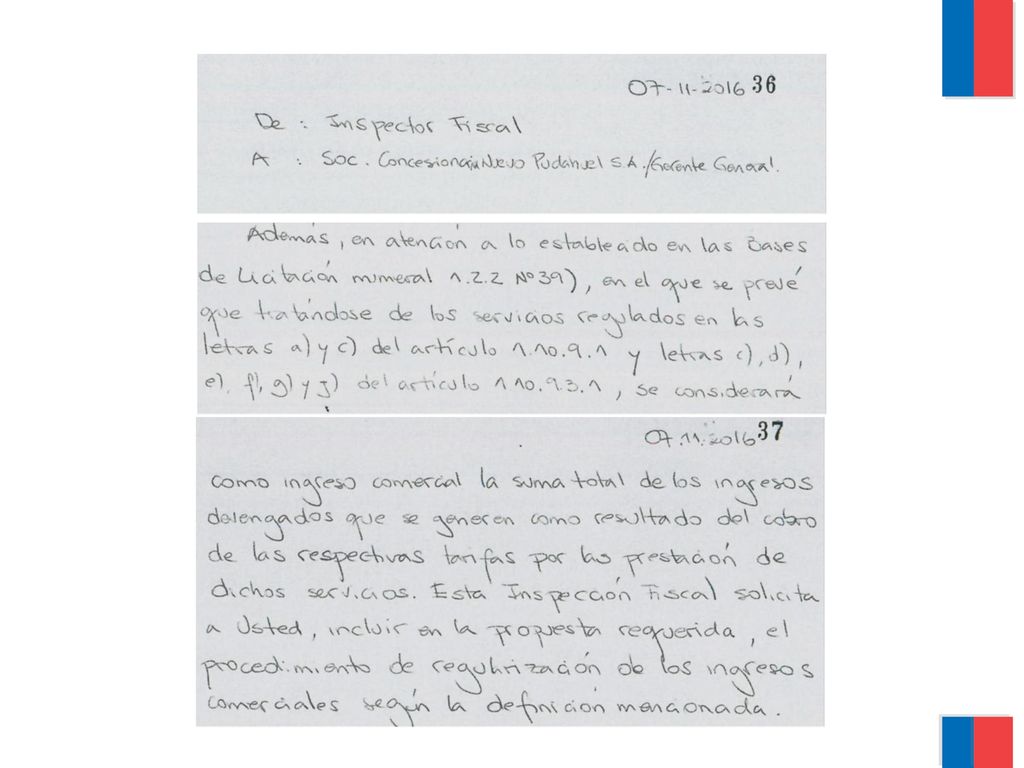 07-11-2016 36
De : Inspector Fiscal
A : Soc. Concesionaria Nuevo Pudahuel S.A./Gerente General.
Además, en atención a lo establecido en las Bases
de Licitación numeral 1.2.2 Nº39), en el que se prevé
que tratándose de los servicios regulados en las
letras a) y c) del artículo 1.10.9.1 y letras c), d),
e), f), g) y j) del artículo 1.10.9.3.1, se considerará
07.11.2016 37
como ingreso comercial la suma total de los ingresos
devengados que se generen como resultado del cobro
de las respectivas tarifas por las prestación de
dichos servicios. Esta Inspección Fiscal solicita
a Usted, incluir en la propuesta requerida, el
procedimiento de regularización de los ingresos
comerciales según la definición mencionada.